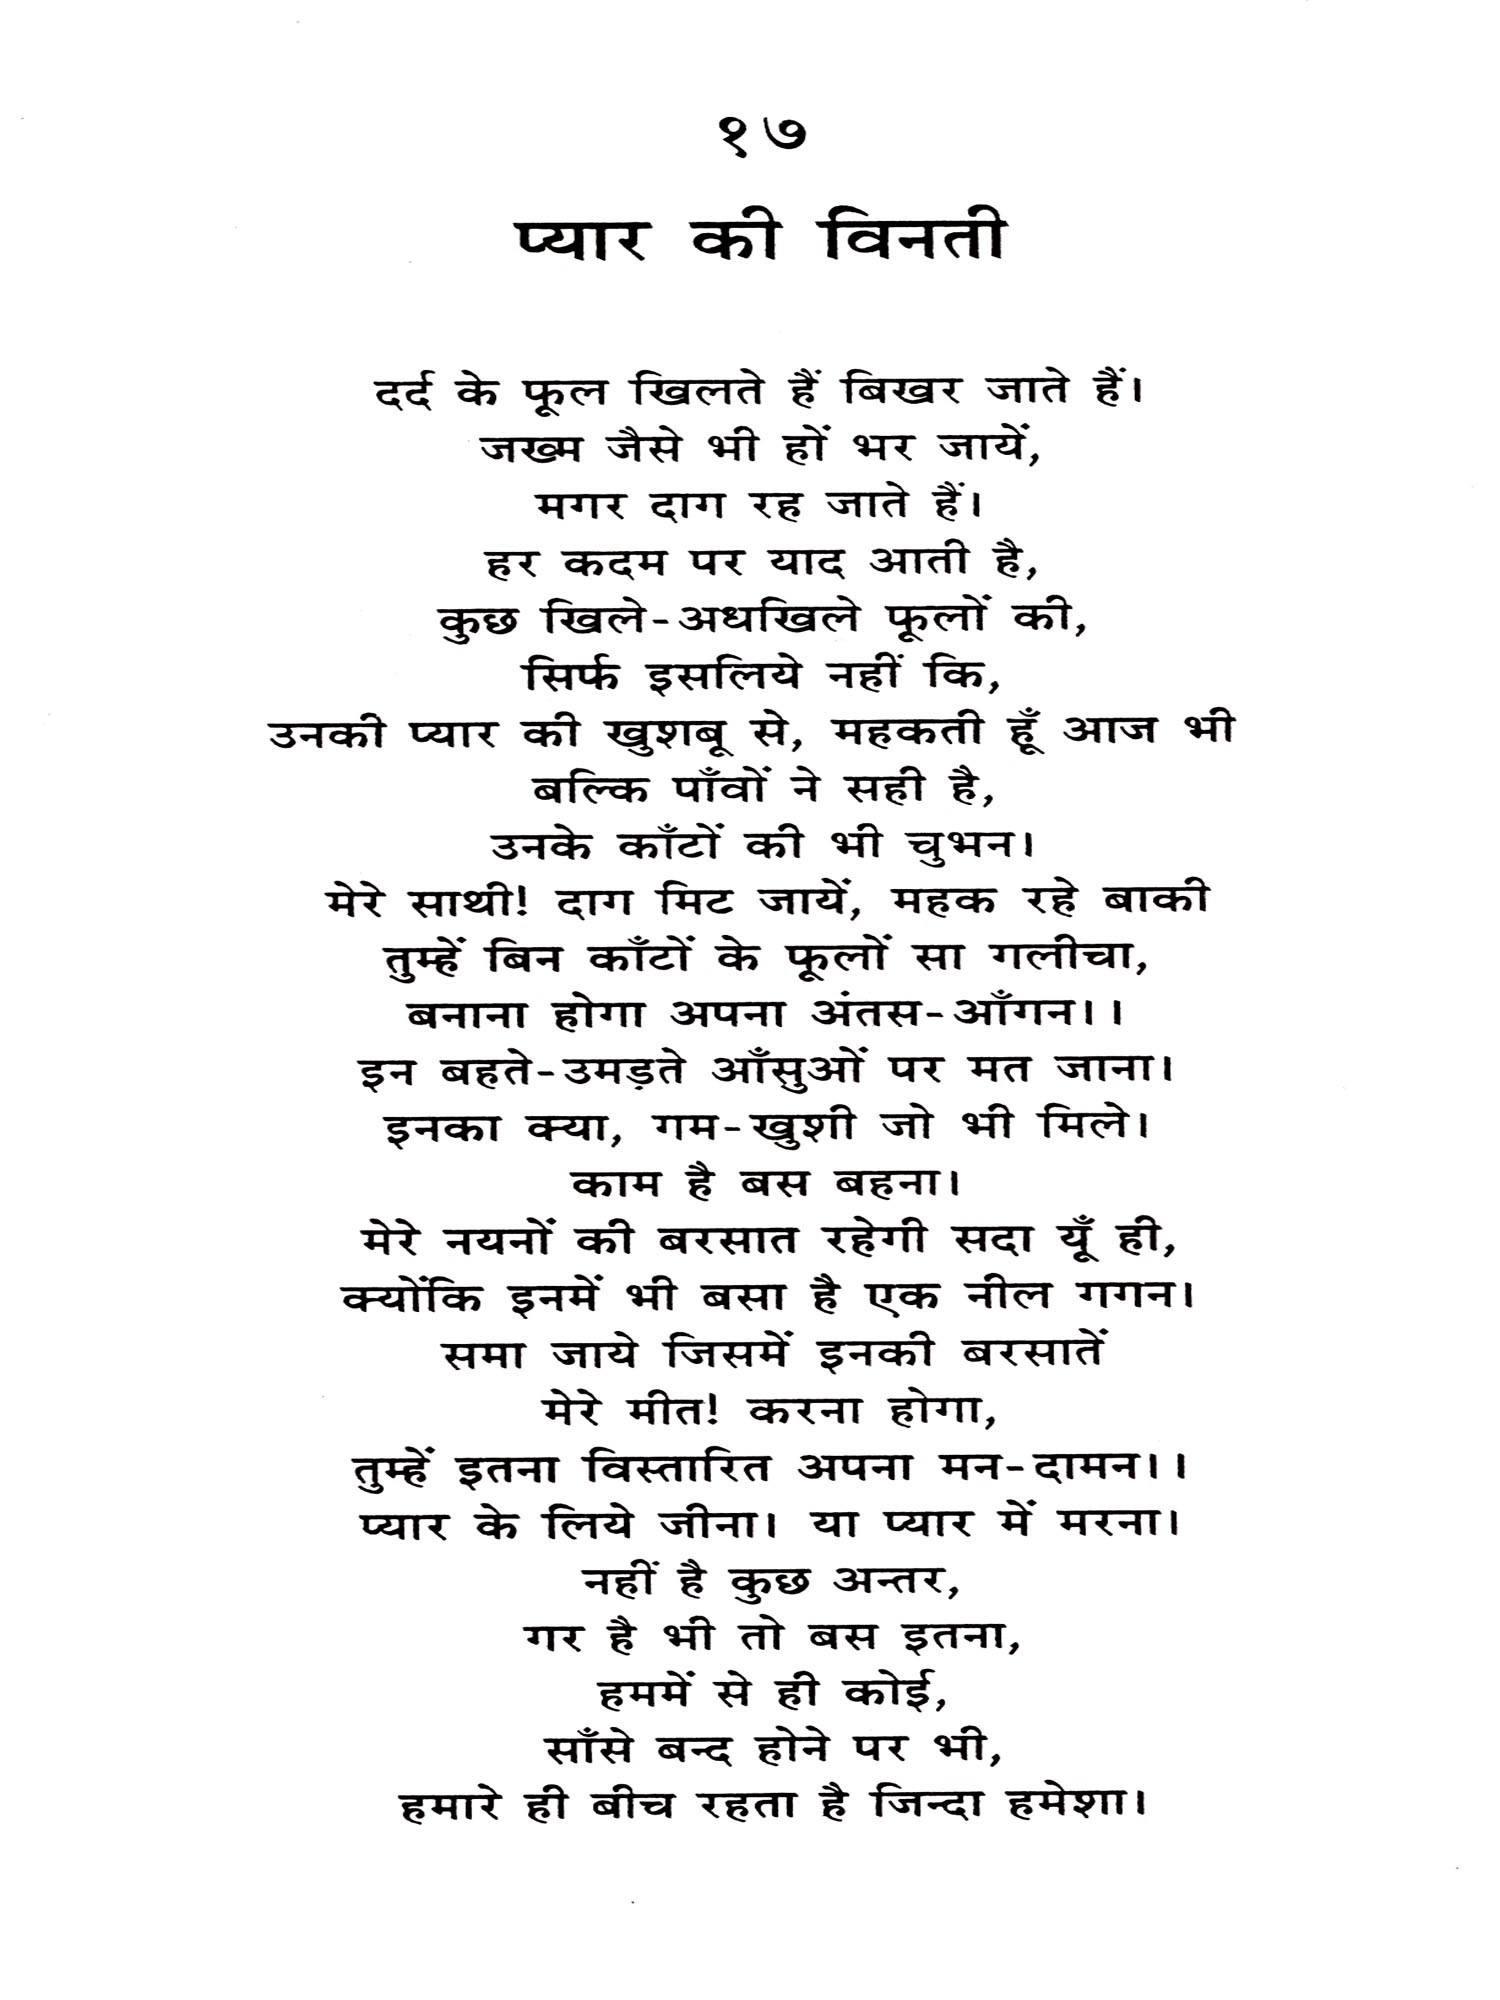 १७
प्यार की विनती
दर्द के फूल खिलते हैं बिखर जाते हैं।
जख्म जैसे भी हों भर जायें,
मगर दाग रह जाते हैं।
हर कदम पर याद आती है,
कुछ खिले-अधखिले फूलों की,
सिर्फ इसलिये नहीं कि,
उनकी प्यार की खुशबू से, महकती हूँ आज भी
बल्कि पाँवों ने सही है,
उनके काँटों की भी चुभन।
मेरे साथी! दाग मिट जायें, महक रहे बाकी
तुम्हें बिन काँटों के फूलों सा गलीचा,
बनाना होगा अपना अंतस-आँगन।।
इन बहते-उमड़ते आँसुओं पर मत जाना।
इनका क्या, गम-खुशी जो भी मिले।
काम है बस बहना।
मेरे नयनों की बरसात रहेगी सदा यूँ ही,
क्योंकि इनमें भी बसा है एक नील गगन।
समा जाये जिसमें इनकी बरसातें
मेरे मीत! करना होगा,
तुम्हें इतना विस्तारित अपना मन-दामन।।
प्यार के लिये जीना। या प्यार में मरना।
नहीं है कुछ अन्तर,
गर है भी तो बस इतना,
हममें से ही कोई,
साँसे बन्द होने पर भी,
हमारे ही बीच रहता है जिन्दा हमेशा।